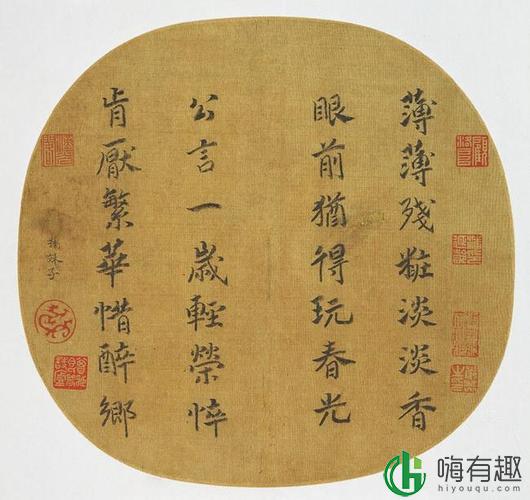 薄薄殘粧淡淡香
眼前猶得玩春光
公言一歲輕榮悴
肯厭繁華惜醉鄉
楊妹子
嗨有趣
hiyouqu.com